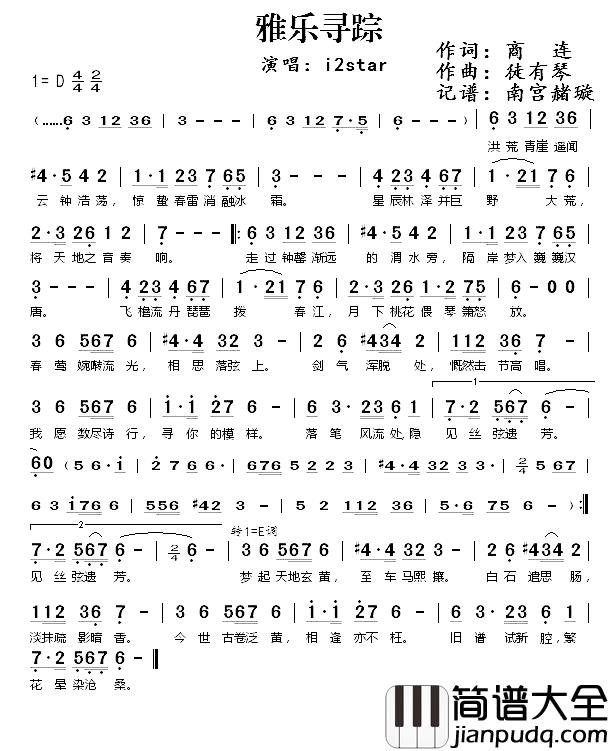 雅乐寻踪
演唱：i2star
作词：商 连
作曲：徒有琴
记谱：南宫赭璇
1=D 4/4 2/4
(……6 3 12 36 | 5 - - - | 3 - - - | 6 3 12 7·5 | 6 - - - ) | 6 3 12 36 |
洪荒青崖遥闻
#4·5 4 2 | 1·1 23 45 25 | 3 - - - | 4 23 4 67 | 1·21 7 6 |
云钟浩荡，惊蛰春雷消融冰霜。星辰林泽并巨野大荒，
2·3 26 1 2 | 7 - - - |: 6 3 12 36 | #4·5 4 2 | 1·1 23 45 25 |
将天地之音奏响。走过钟罄渐远的渭水旁，隔岸梦入巍巍汉
3 - - - | 4 23 4 67 | 1·21 7 6 | 2·3 26 1·2 75 | 6 - 0 0 |
唐。飞檐流丹琵琶拨春江，月下桃花偎琴箫怒放。
3 6 567 6 | #4·4 32 3 | 2 6 #434 2 | 112 36 7 - |
春莺婉啭流光，相思落弦上。剑气浑脱处，慨然击节高唱。
3 6 567 6 | 1·1 27 6 | 6 3 23 61 | 7·2 567 6 - |
我愿数尽诗行，寻你的模样。落笔风流处，隐见丝弦遗芳。
1
60 (5 6·1 | 2 766 6· | 676 5225 | #4·32 3 - | 2/4 56 5 |
63 3 1766 | 556 #42 3 - | 5 2 112 36 | 5·6 75 6 - ) :|
2
转1=E调
7·2 567 6 - | 2/4 6 - | 3 6 567 6 | #4·4 32 3 | 2 6 #434 2 |
见丝弦遗芳。梦起天地玄黄，至车马熙攘。白石遣思肠，
112 36 7 - | 3 6 567 6 | 1·1 27 6 | 6 3 23 6 1 |
淡抹疏影暗香。今世古卷泛黄，相逢亦不枉。旧谱试新腔，繁
7·2 567 6 - ‖
花晕染沧桑。
简谱大全
jianpudq.com